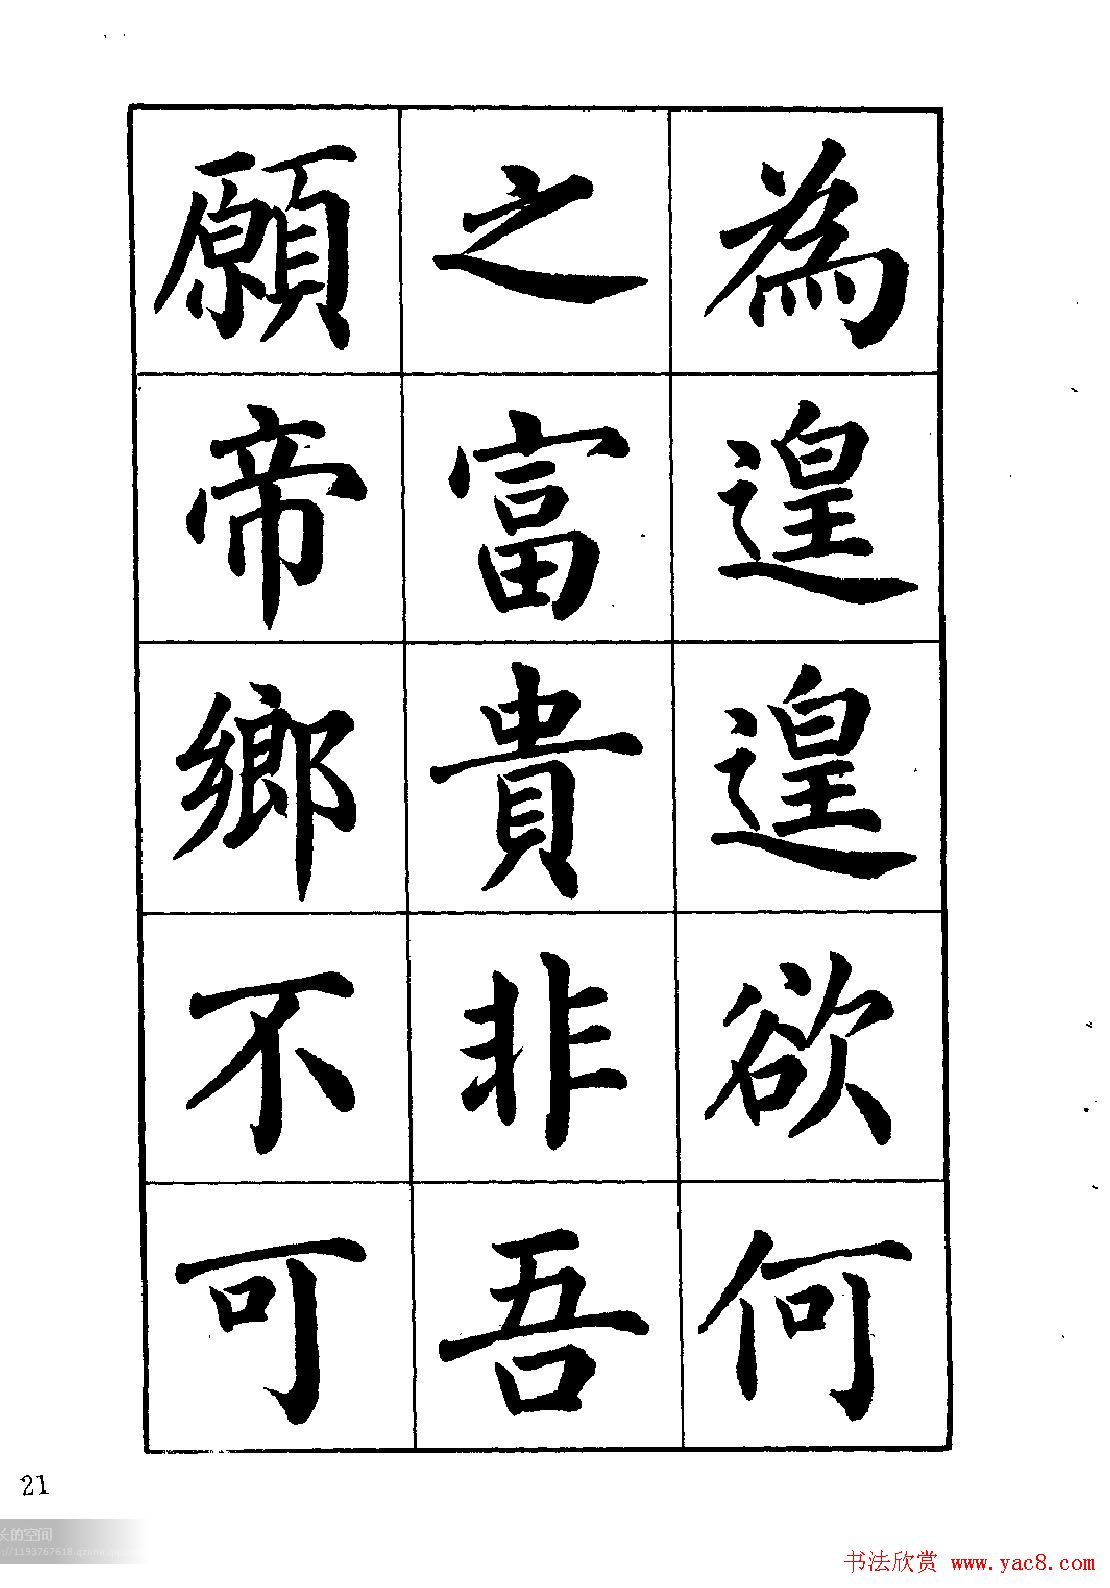 為遑遑欲何
之富貴非吾
願帝鄉不可
21
长的空间
书法欣赏 www.yac8.com